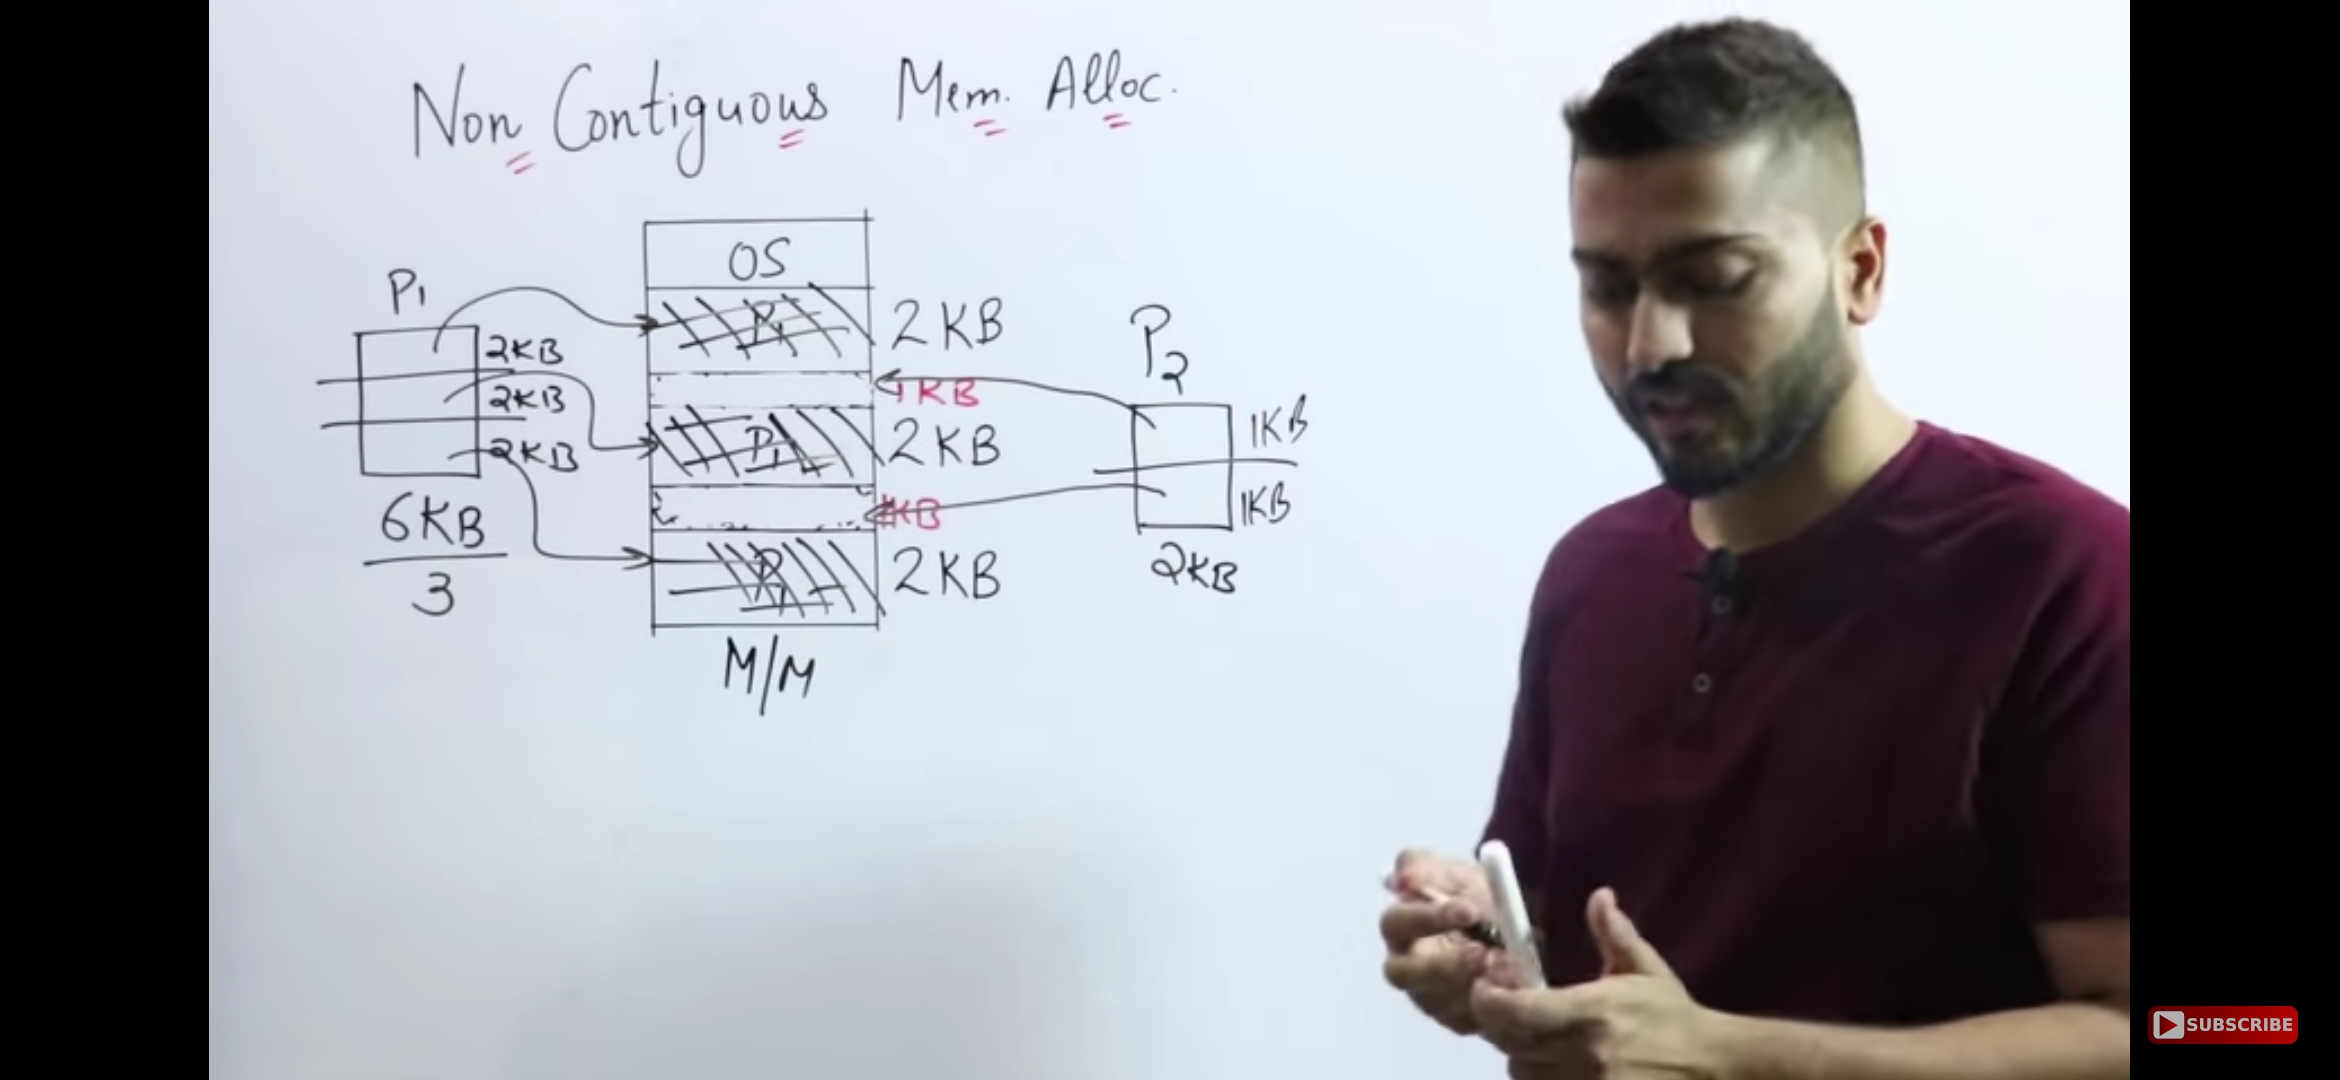 Non Contiguous Mem. Alloc.
P1
2KB
2KB
2KB
6KB
3
OS
P1
2KB
1KB
P1
2KB
1KB
P1
2KB
M/M
P2
1KB
1KB
2KB
SUBSCRIBE